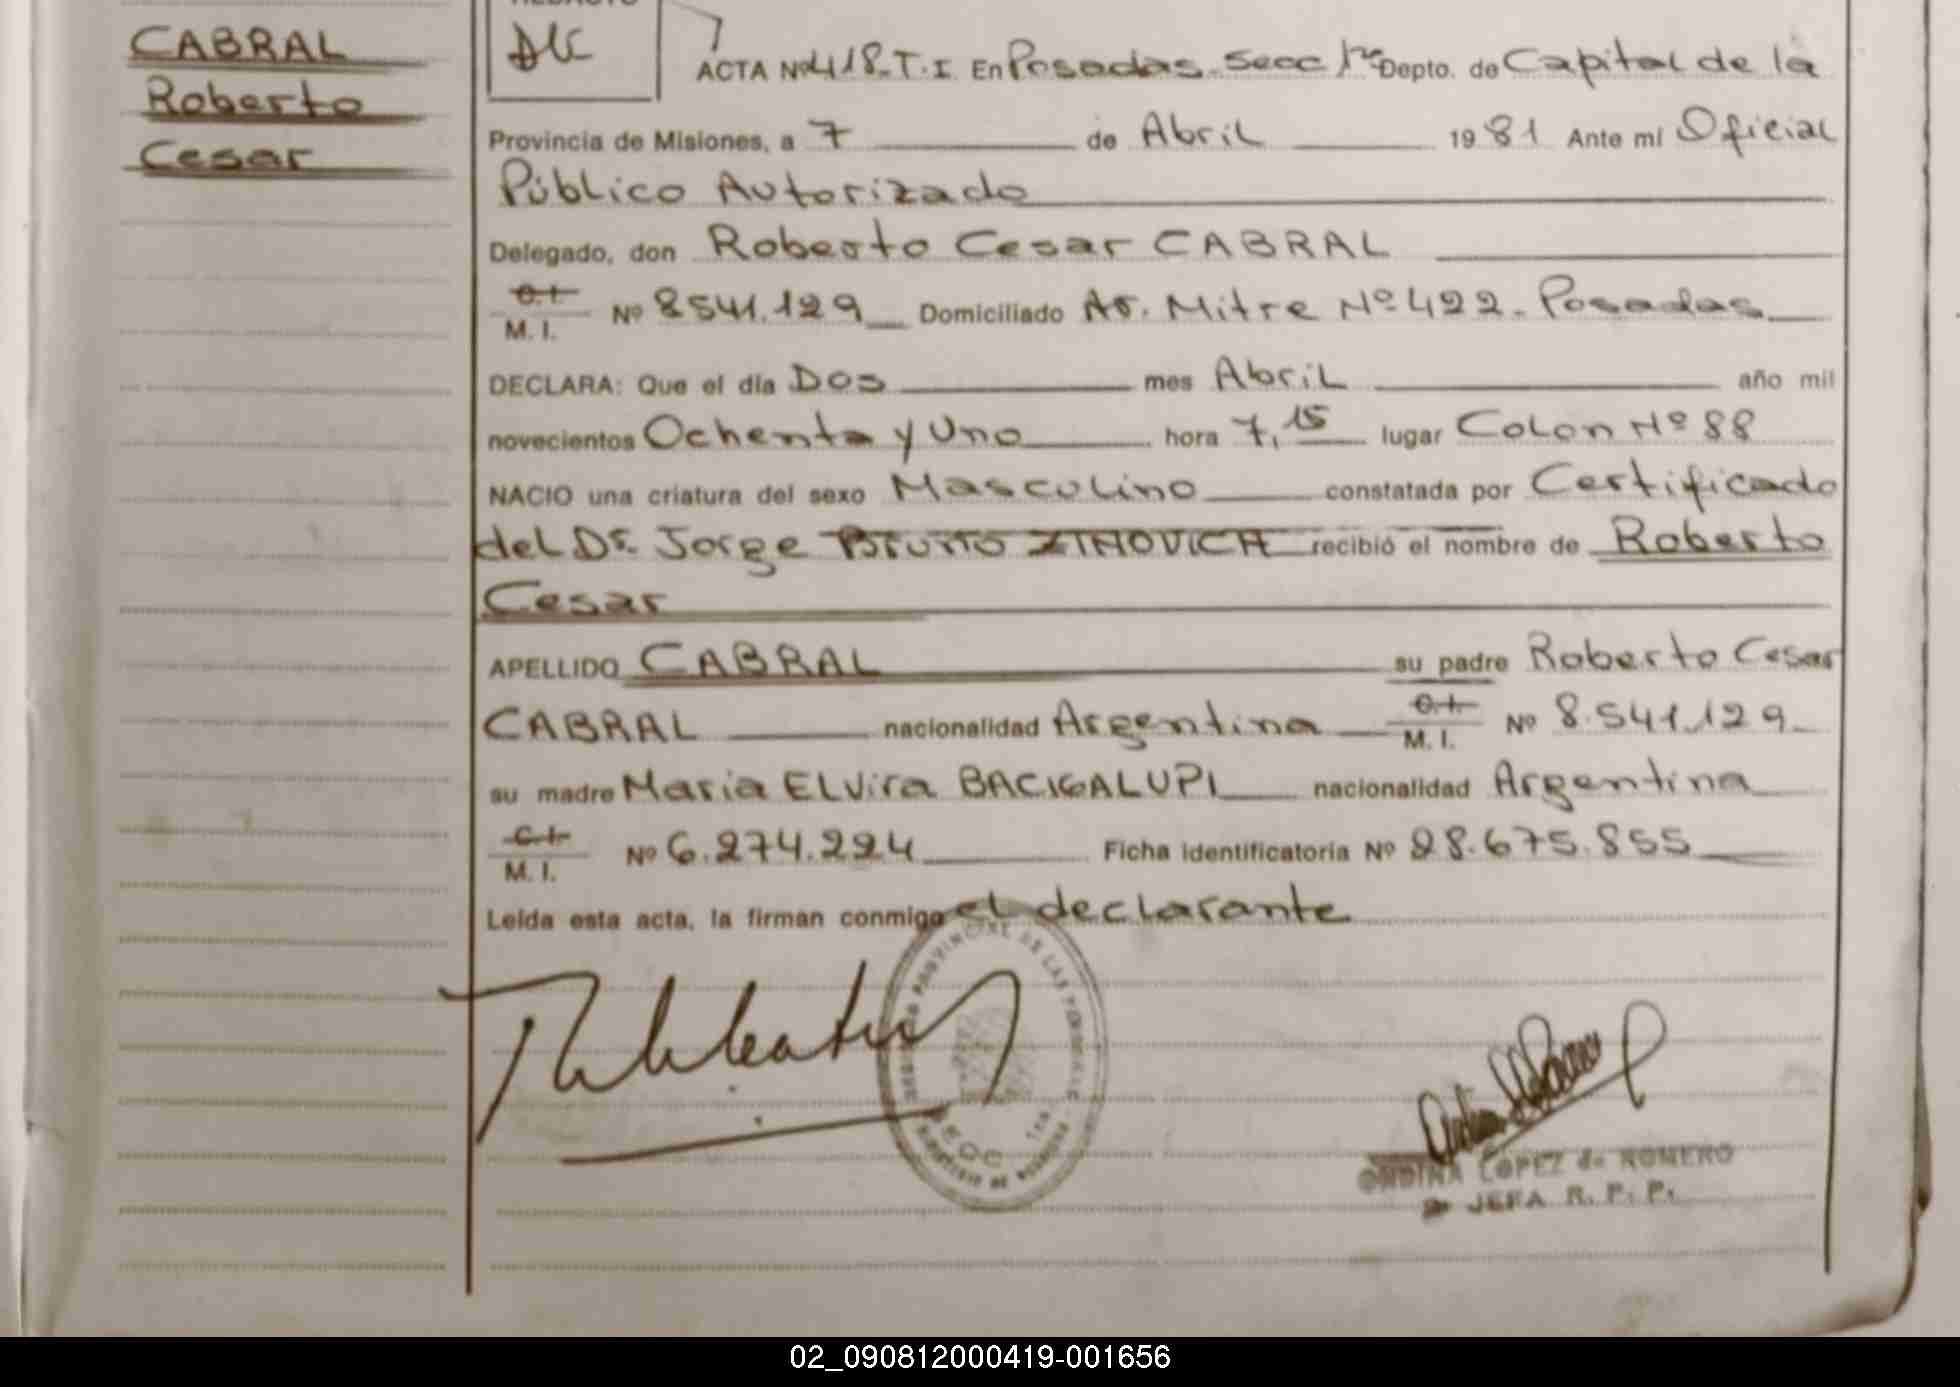 CABRAL
Roberto
Cesar
DLC
ACTA Nº 418.T.I. En Posadas. Secc 1ra Depto. de Capital de la
Provincia de Misiones, a 7 de Abril 1981 Ante mí Oficial
Público Autorizado
Delegado, don Roberto Cesar CABRAL
C.I.
M. I. Nº 8541.129 Domiciliado Av. Mitre Nº 422. Posadas
DECLARA: Que el día Dos mes Abril año mil
novecientos Ochenta y Uno hora 7,15 lugar Colon Nº 88
NACIO una criatura del sexo Masculino constatada por Certificado
del Dr. Jorge Bruno ZINOVICH recibió el nombre de Roberto
Cesar
APELLIDO CABRAL su padre Roberto Cesar
CABRAL nacionalidad Argentina C.I. M. I. Nº 8.541.129
su madre Maria ELvira BACIGALUPI nacionalidad Argentina
C.I.
M. I. Nº 6.274.224 Ficha identificatoria Nº 28.675.855
Leída esta acta, la firman conmigo el declarante
REGISTRO PROVINCIAL DE LAS PERSONAS
SECC 1ra
MINISTERIO DE
ONDINA LOPEZ de ROMERO
JEFA R. P. P.
02_090812000419-001656